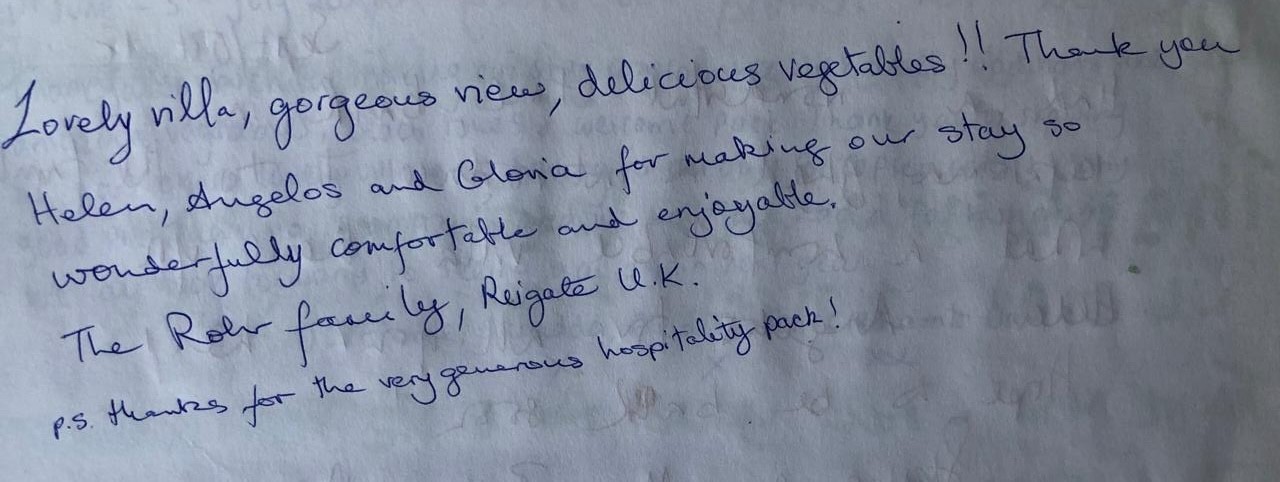 Lovely villa, gorgeous view, delicious vegetables!! Thank you
Helen, Angelos and Gloria for making our stay so
wonderfully comfortable and enjoyable.
The Rohr family, Reigate U.K.
p.s. thanks for the very generous hospitality pack!